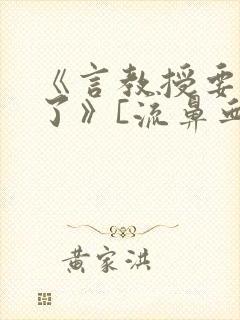 《言教授要
了》[流鼻血
黄家洪